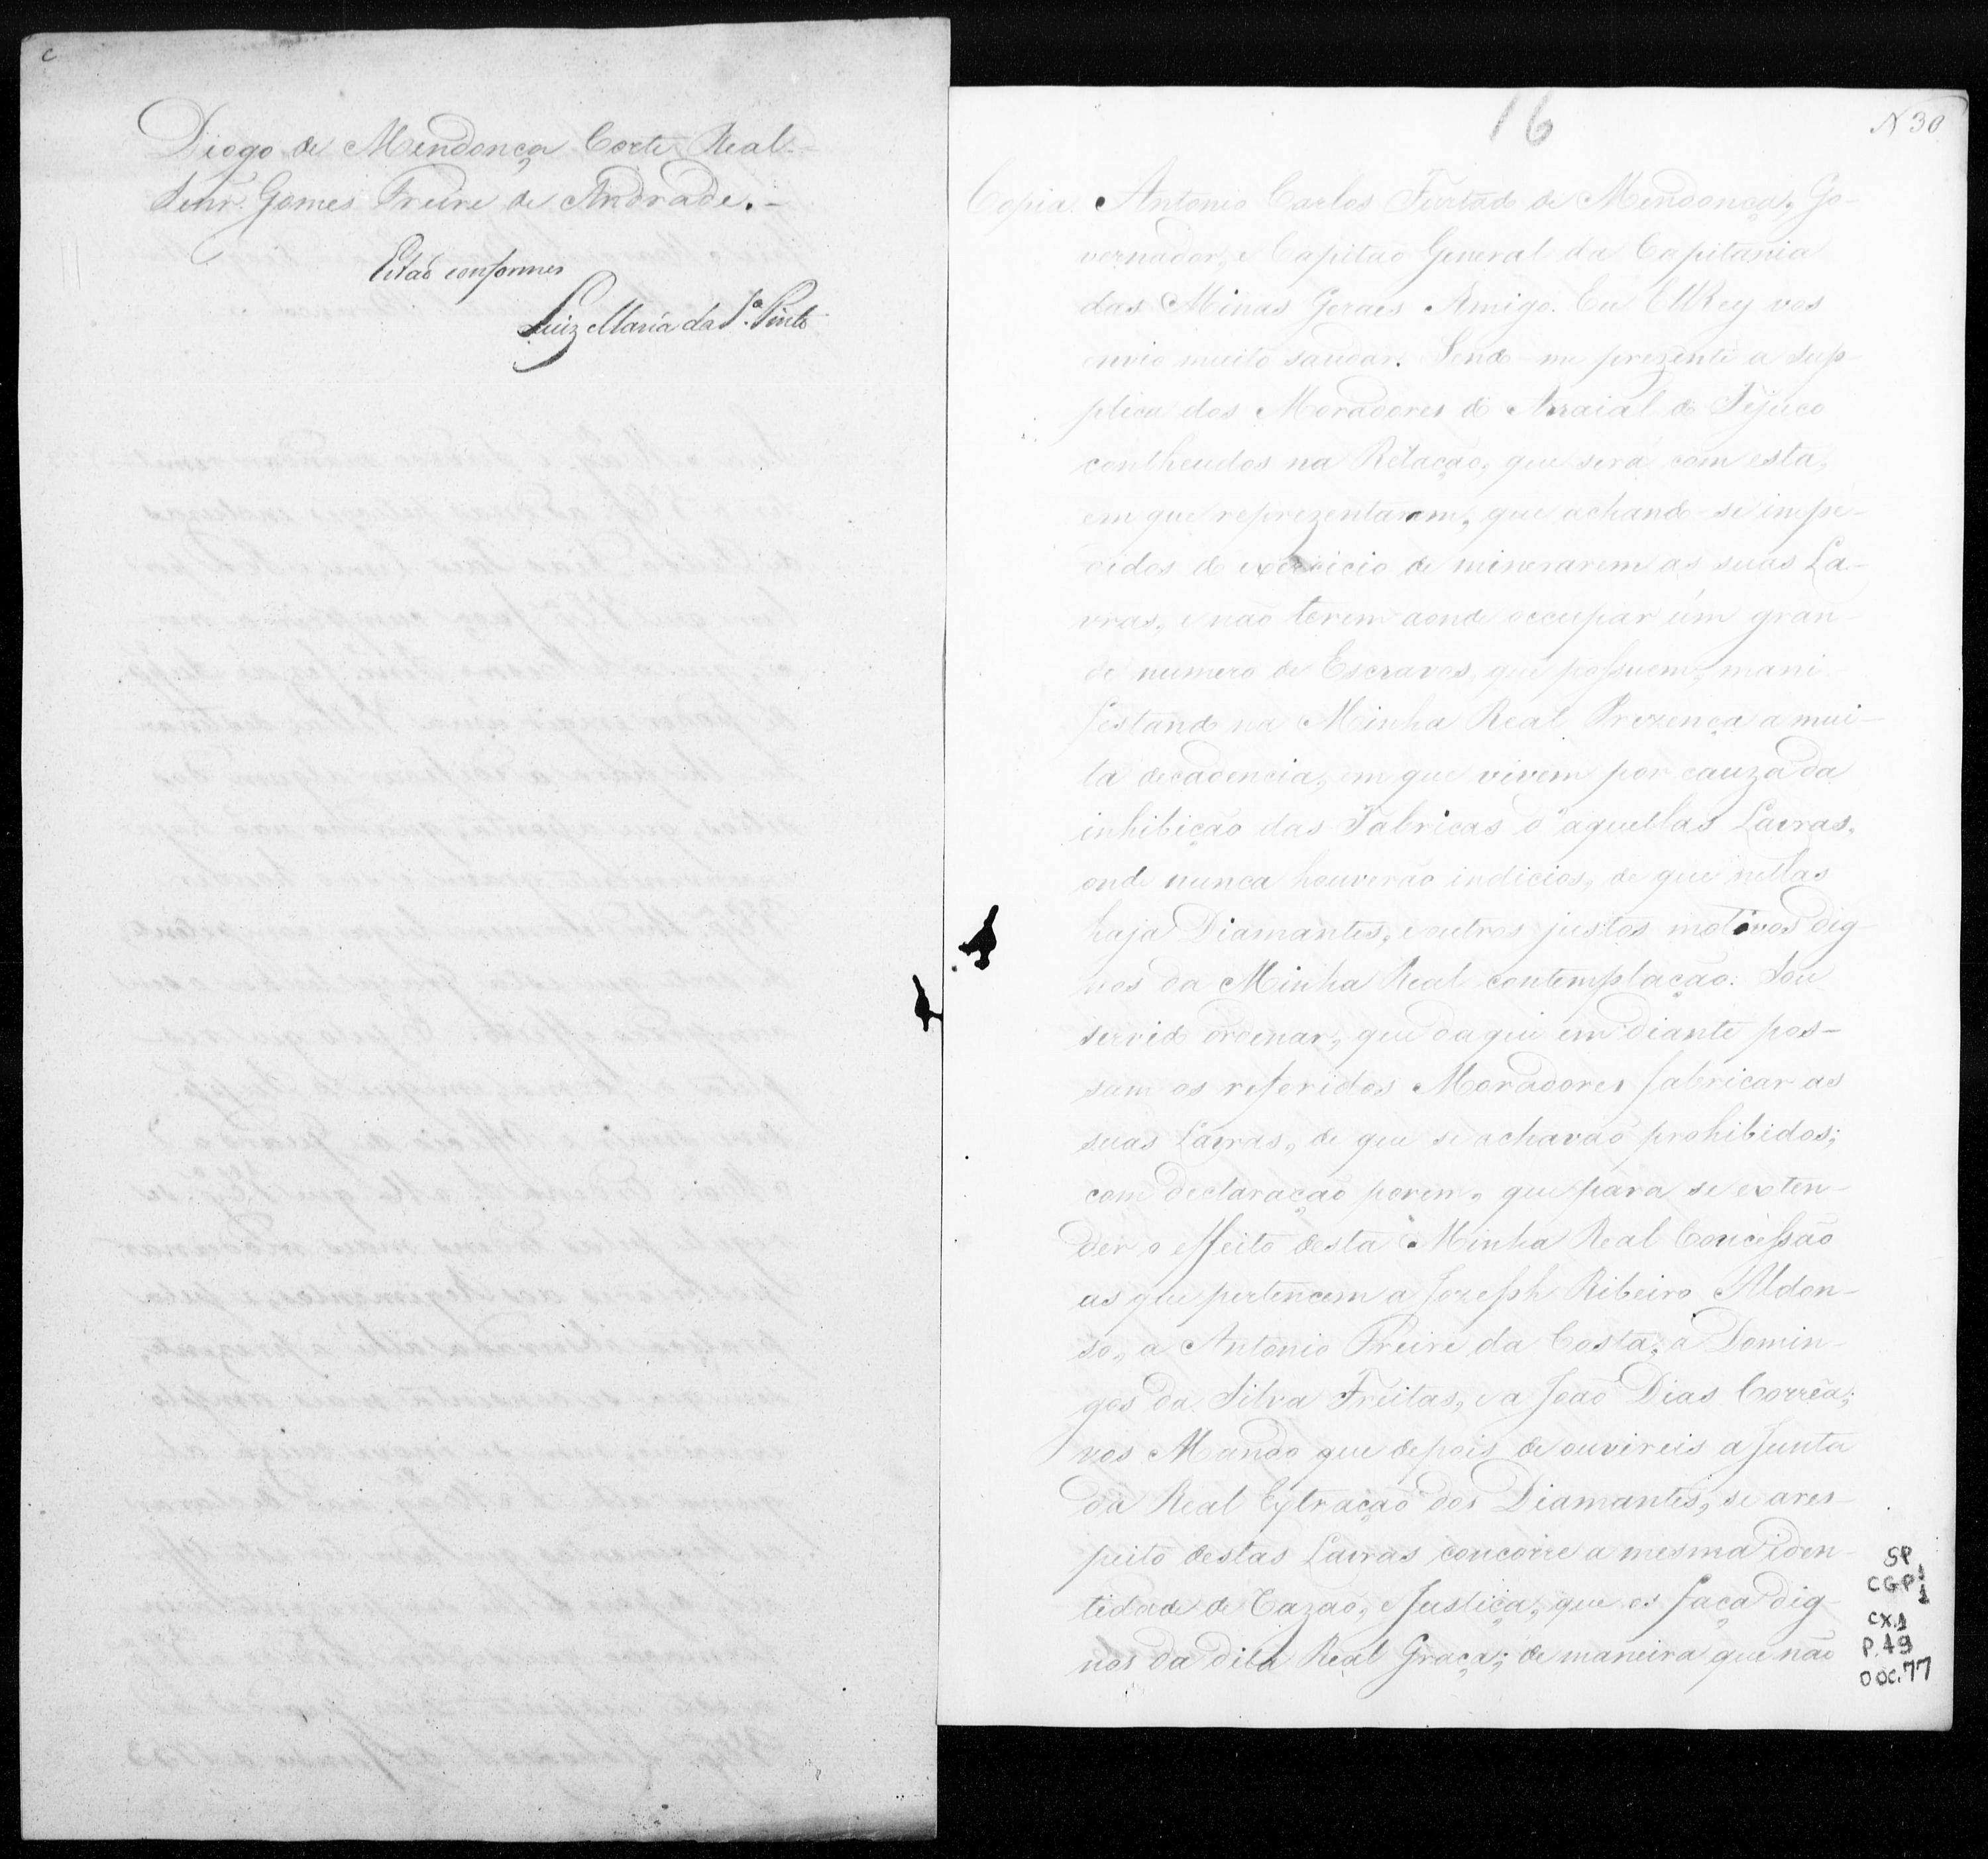 Diogo de Mendonça Corte Real.-
Senr. Gomes Freire de Andrade.-
Estaõ conformes
Luiz Maria da Sª. Pinto
16
N 30
Copia. Antonio Carlos Furtado de Mendonça, Go-
vernador, e Capitaõ General da Capitania
das Minas Geraes Amigo. Eu ElRey vos
envio muito saudar. Sendo-me prezente a sup-
plica dos Moradores do Arraial do Tejuco
contheudos na Relaçaõ, que será com esta,
em que reprezentaram, que achando-se impe-
didos do exercicio de minerarem as suas La-
vras, e naõ terem aonde occupar úm gran-
de numero de Escravos, que possuem, mani
festando na Minha Real Prezença a mui-
ta decadencia, em que vivem por cauza da
inhibiçaõ das Fabricas d'aquellas Lavras,
onde nunca houveraõ indicios, de que nellas
haja Diamantes, e outros justos motivos dig-
nos da Minha Real contemplaçaõ: Sou
servido ordenar, que daqui em diante pos-
sam os referidos Moradores fabricar as
suas Lavras, de que se achavaõ prohibidos;
com declaraçaõ porem, que para se exten-
der o effeito desta Minha Real Concessão
as que pertencem a Jozeph Ribeiro Aldon-
so, a Antonio Freire da Costa, a Domin-
gos da Silva Freitas, e a Joaõ Dias Corrêa;
vos Mando que depois de ouvireis a Junta
da Real Extraçaõ dos Diamantes, se ares-
peito destas Lavras concorre a mesma iden-
tidade de Razaõ, e Justiça, que os faça dig-
nos da dita Real Graça; de maneira que não
SP
CGP 1
1
CX.1
P.49
DOC.77